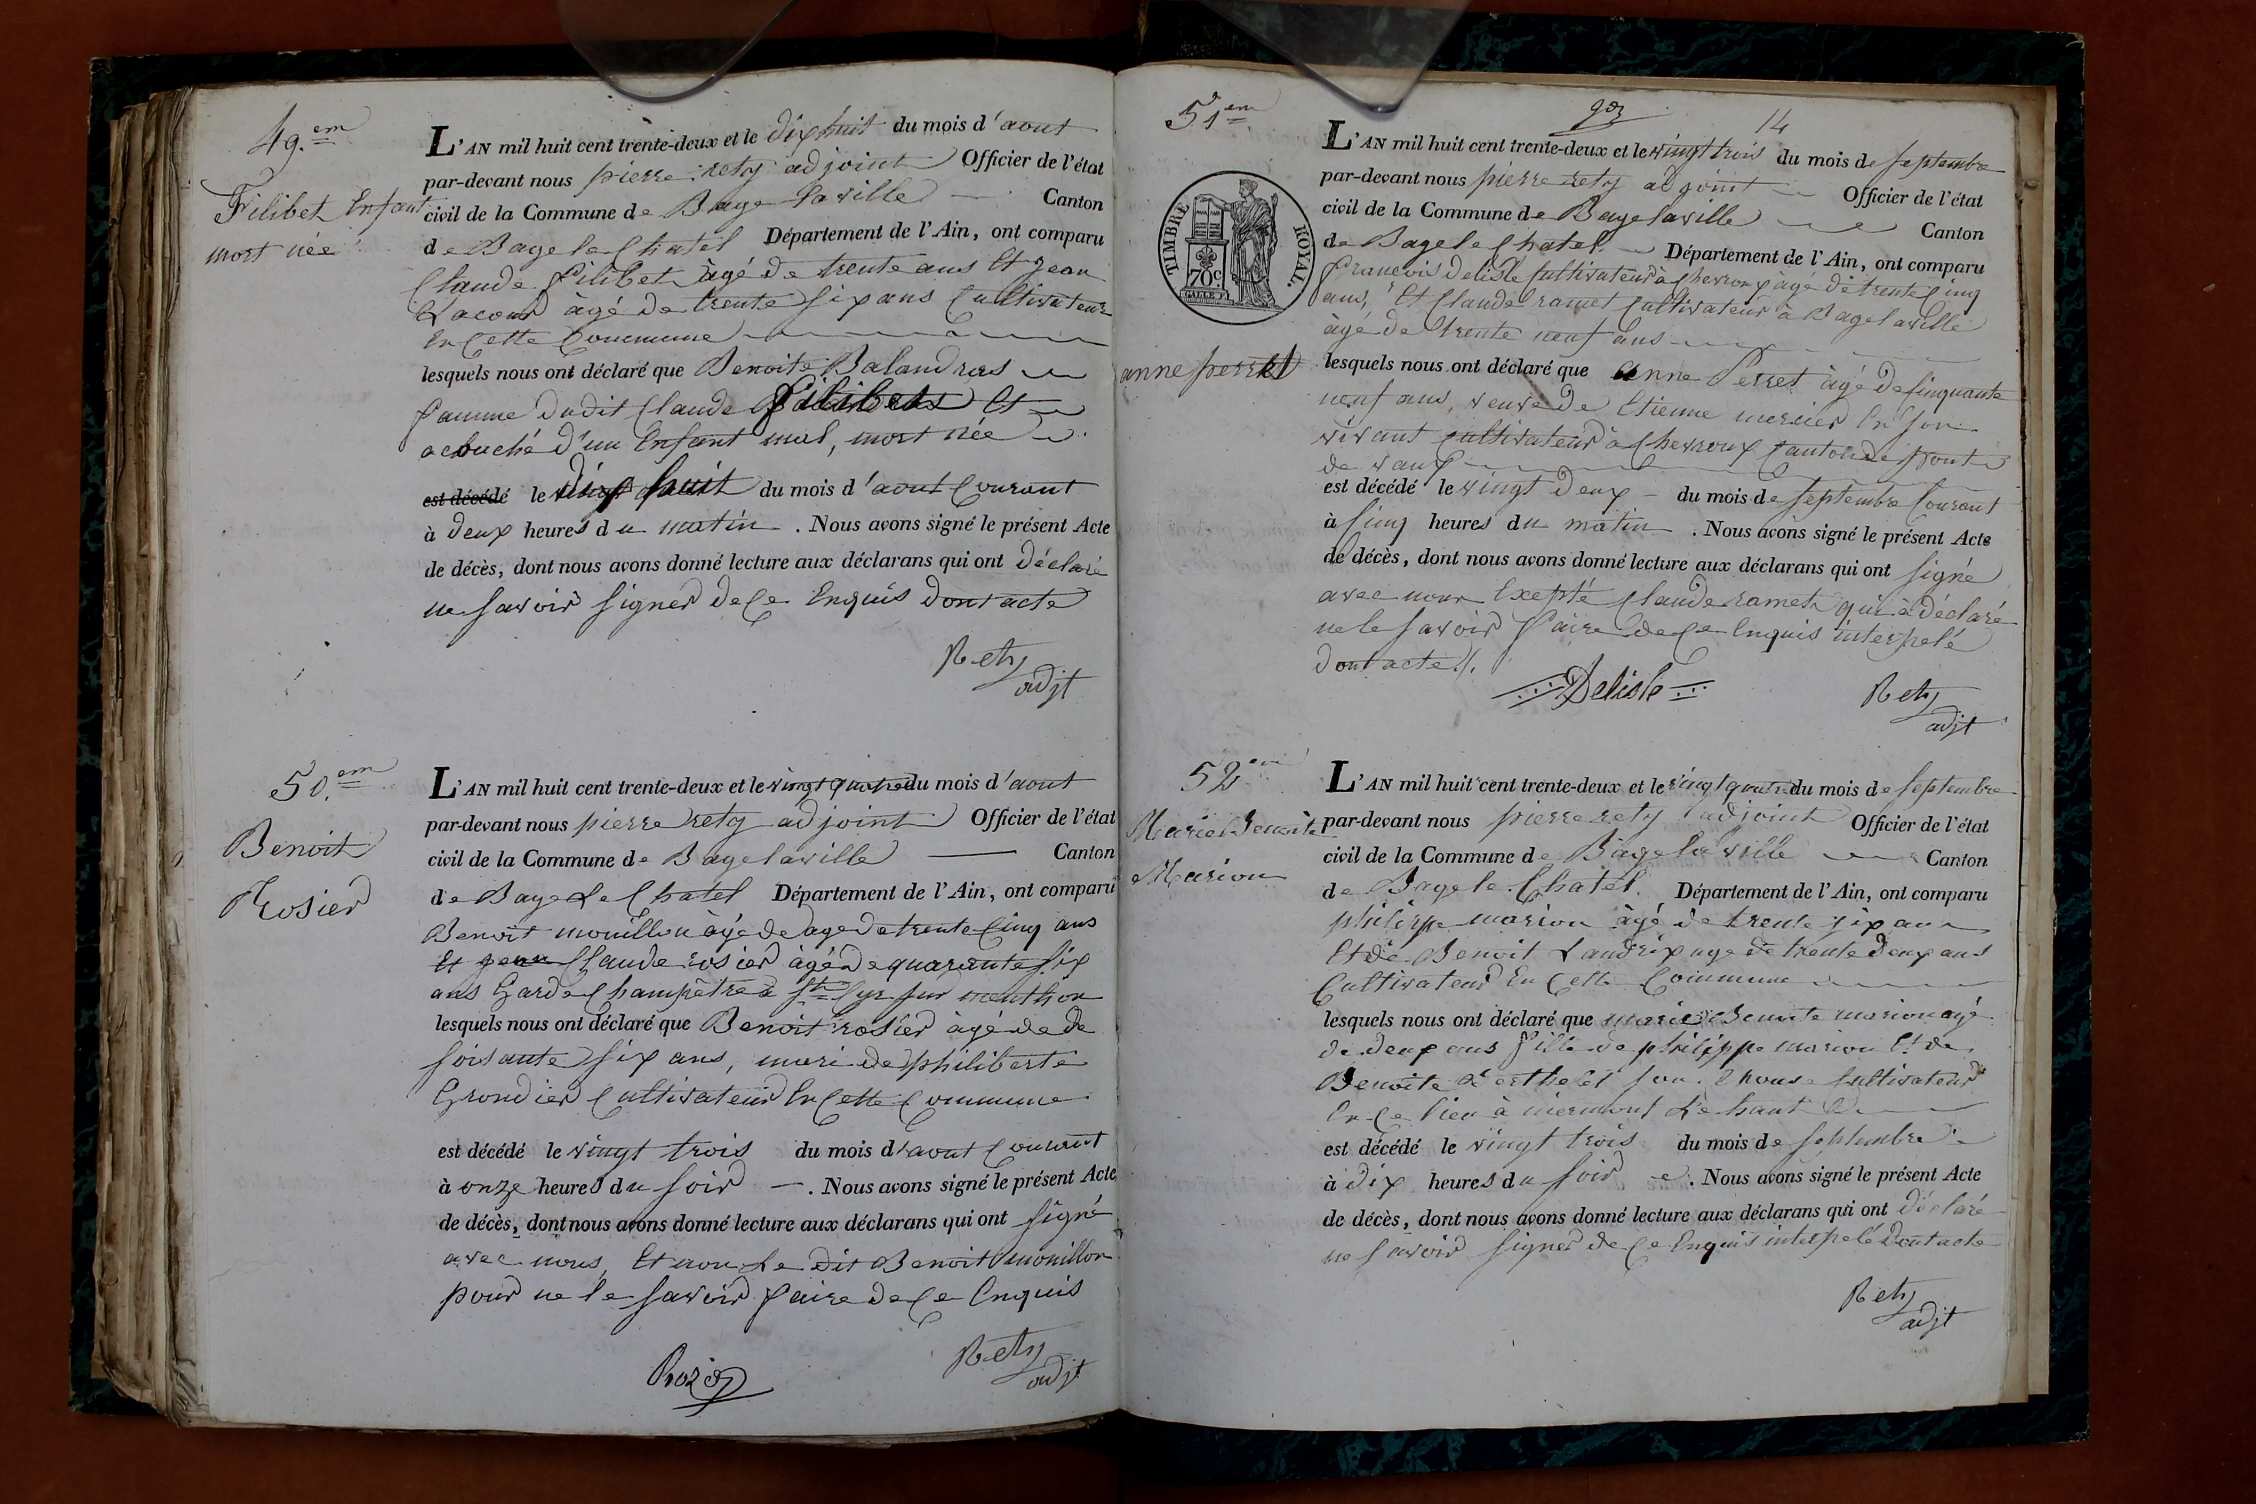 49.em
Filibet Enfant
mort née
L'AN mil huit cent trente-deux et le dix huit du mois d'aout
par-devant nous pierre rety adjoint Officier de l'état
civil de la Commune de Bage la ville Canton
de Bage le Chatel Département de l'Ain, ont comparu
Claude filibet àgé de trente ans Et jean
Lacour àgé de trente six ans Cultivateur
En Cette Commune
lesquels nous ont déclaré que Benoite Balandras
famme dudit Claude filibet Et
acouché d'un Enfant mal, mort née
est décédé le dix huit du mois d'aout Courant
à deux heures du matin. Nous avons signé le présent Acte
de décès, dont nous avons donné lecture aux déclarans qui ont déclaré
ne savoir signer de Ce Enquis dont acte
Rety
adjt
50.em
Benoit
Rosier
L'AN mil huit cent trente-deux et le vingt quatre du mois d'aout
par-devant nous pierre rety adjoint Officier de l'état
civil de la Commune de Bage laville Canton
de Bage Le Chatel Département de l'Ain, ont comparu
Benoit mouillon àgé de age de trente Cinq ans
Et jean Claude rosier àgé de quarante six
ans Garde Champêtre à St Cyr sur menthon
lesquels nous ont déclaré que Benoit rosier àgé de de
soisante six ans, mari de philiberte
Grondier Cultivateur En Cette Commune
est décédé le vingt trois du mois d'aout Courant
à onze heures du soir. Nous avons signé le présent Acte
de décès, dont nous avons donné lecture aux déclarans qui ont signé
avec nous, Et non Le dit Benoit mouillon
pour ne le savoir faire de Ce Enquis
Rozier
Rety
adjt
51em
14
TIMBRE ROYAL.
70c
anne perret
L'AN mil huit cent trente-deux et le vingt trois du mois de septembre
par-devant nous pierre rety adjoint Officier de l'état
civil de la Commune de Bage laville Canton
de Bage le Chatel Département de l'Ain, ont comparu
francois Delisle Cultivateur à Chevroux àgé de trente Cinq
ans, Et Claude ramet Cultivateur à Bage laville
àgé de trente neuf ans
lesquels nous ont déclaré que anne Perret àgé de Cinquante
neuf ans, veuve de Etienne mercier En son
vivant Cultivateur à Chevroux Canton de pont
de vaux
est décédé le vingt deux du mois de septembre Courant
à Cinq heures du matin. Nous avons signé le présent Acte
de décès, dont nous avons donné lecture aux déclarans qui ont signé
avec nous Exepté Claude ramet qui à déclaré
ne le savoir faire de Ce Enquis interpelé
dont acte.
Delisle
Rety
adjt
52em
Marie Benoite
Marion
L'AN mil huit cent trente-deux et le vingt quatre du mois de septembre
par-devant nous pierre rety adjoint Officier de l'état
civil de la Commune de Bage la ville Canton
de Bage le Chatel. Département de l'Ain, ont comparu
philippe marion àgé de trente six ans
Et de Benoit Landrix age de trente deux ans
Cultivateur En Cette Commune
lesquels nous ont déclaré que marie Benoite marion agé
de deux ans fille de philippe marion Et de
Benoite Berthelet son Epouse Cultivateur
En Ce lieu à mermont Le haut
est décédé le vingt trois du mois de septembre
à dix heures du soir. Nous avons signé le présent Acte
de décès, dont nous avons donné lecture aux déclarans qui ont déclaré
ne savoir signer de Ce Enquis interpelé Dont acte
Rety
adjt